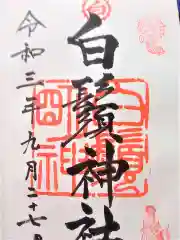 白鬚神社
令和三年九月二十七日